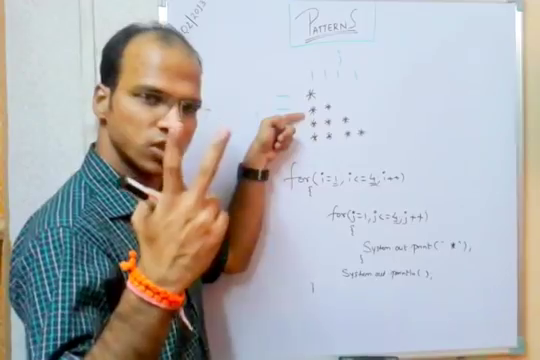 02/2013
PATTERNS
j
*
* *
* * *
* * * *
for(i=1, i<=4, i++)
{
for(j=1, j<=4, j++)
{
System out print(" * "),
}
System out println( ),
}